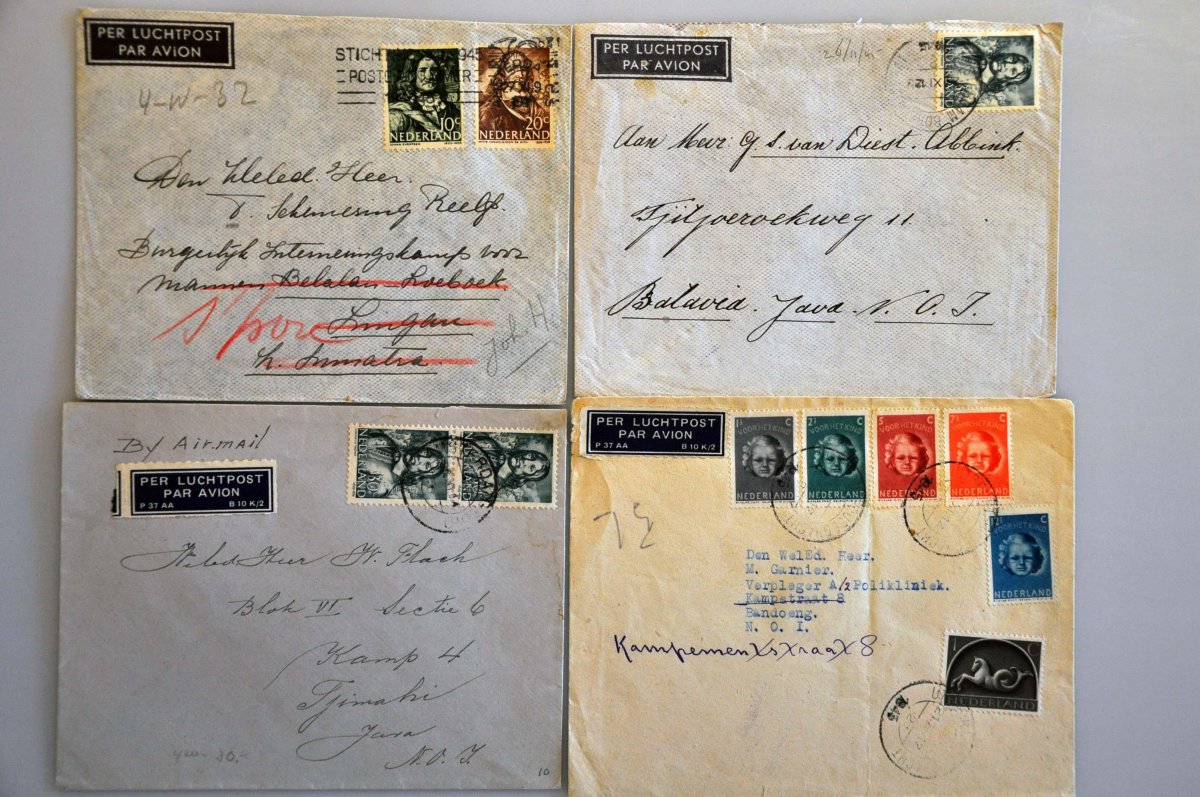 PER LUCHTPOST
PAR AVION
4-W-32
STICH 1945
POSTE
10c
NEDERLAND
20c
NEDERLAND
Den Weled. Heer.
D. Schemering Reelfs.
Burgerlyk Interneringskamp voor
mannen Belalau Loeboek
Linggau
Z. Sumatra
S'pore
Joh. H.
PER LUCHTPOST
PAR AVION
NEDERLAND
Aan Mevr. G. S. van Diest. Abbink.
Tjitjoeroekweg 11.
Batavia. Java. N. O. I.
By Airmail
PER LUCHTPOST
PAR AVION
P 37 AA B 10 K/2
NEDERLAND
30c
Weled Heer W. Flach
Blok VI Sectie 6
Kamp 4
Tjimahi
Java
N.O.I.
10
PER LUCHTPOST
PAR AVION
P 37 AA B 10 K/2
1½ C
VOOR HET KIND
NEDERLAND
2½ C
VOOR HET KIND
NEDERLAND
5 C
VOOR HET KIND
NEDERLAND
7½ C
VOOR HET KIND
NEDERLAND
12½ C
VOOR HET KIND
NEDERLAND
Den WelEd. Heer.
M. Garnier.
Verpleger A/2 Polikliniek.
Kampstraat 8
Bandoeng.
N. O. I.
Kampementstraat 8
1 C
NEDERLAND
1945